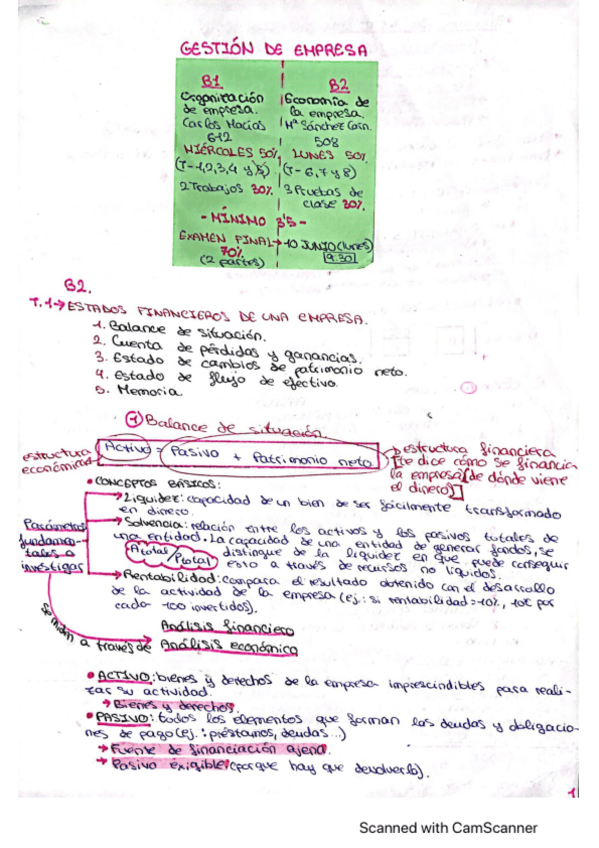 GESTIÓN DE EMPRESA
B1
Organización
de empresa.
Carlos Macías
612
MIÉRCOLES 50%
(T-1,2,3,4 y 5)
2 Trabajos 30%
B2
Economía de
la empresa.
Mª Sánchez
508
LUNES 50%
(T-6, 7 y 8)
3 Pruebas de
clase 30%
- MÍNIMO 3'5 -
EXAMEN FINAL→10 JUNIO (lunes)
70% 9:30
(2 partes)
B2.
T.1→ESTADOS FINANCIEROS DE UNA EMPRESA.
1. Balance de situación.
2. Cuenta de pérdidas y ganancias.
3. Estado de cambios de patrimonio neto.
4. Estado de flujo de efectivo.
5. Memoria.
① Balance de situación
estructura económica
Activo = Pasivo + Patrimonio neto
→estructura financiera
[te dice cómo se financia
la empresa[de dónde viene
el dinero]]
• CONCEPTOS BÁSICOS:
Parámetros
fundamen-
tales a
investigar
→Liquidez: capacidad de un bien de ser fácilmente transformado
en dinero.
→Solvencia: relación entre los activos y los pasivos totales de
una entidad. La capacidad de una entidad de generar fondos, se
Atotal/Ptotal
distingue de la liquidez en que puede conseguir
esto a través de recursos no líquidos.
→Rentabilidad: compara el resultado obtenido con el desarrollo
de la actividad de la empresa (ej: si rentabilidad=10%, 10€ por
cada 100 invertidos).
se miden a través de
Análisis financiero
Análisis económico
• ACTIVO: bienes y derechos de la empresa imprescindibles para reali-
zar su actividad.
→Bienes y derechos.
• PASIVO: todos los elementos que forman las deudas y obligacio-
nes de pago (ej.: préstamos, deudas...)
→ Fuente de financiación ajena.
→ Pasivo exigible (porque hay que devolverlo).
1
Scanned with CamScanner